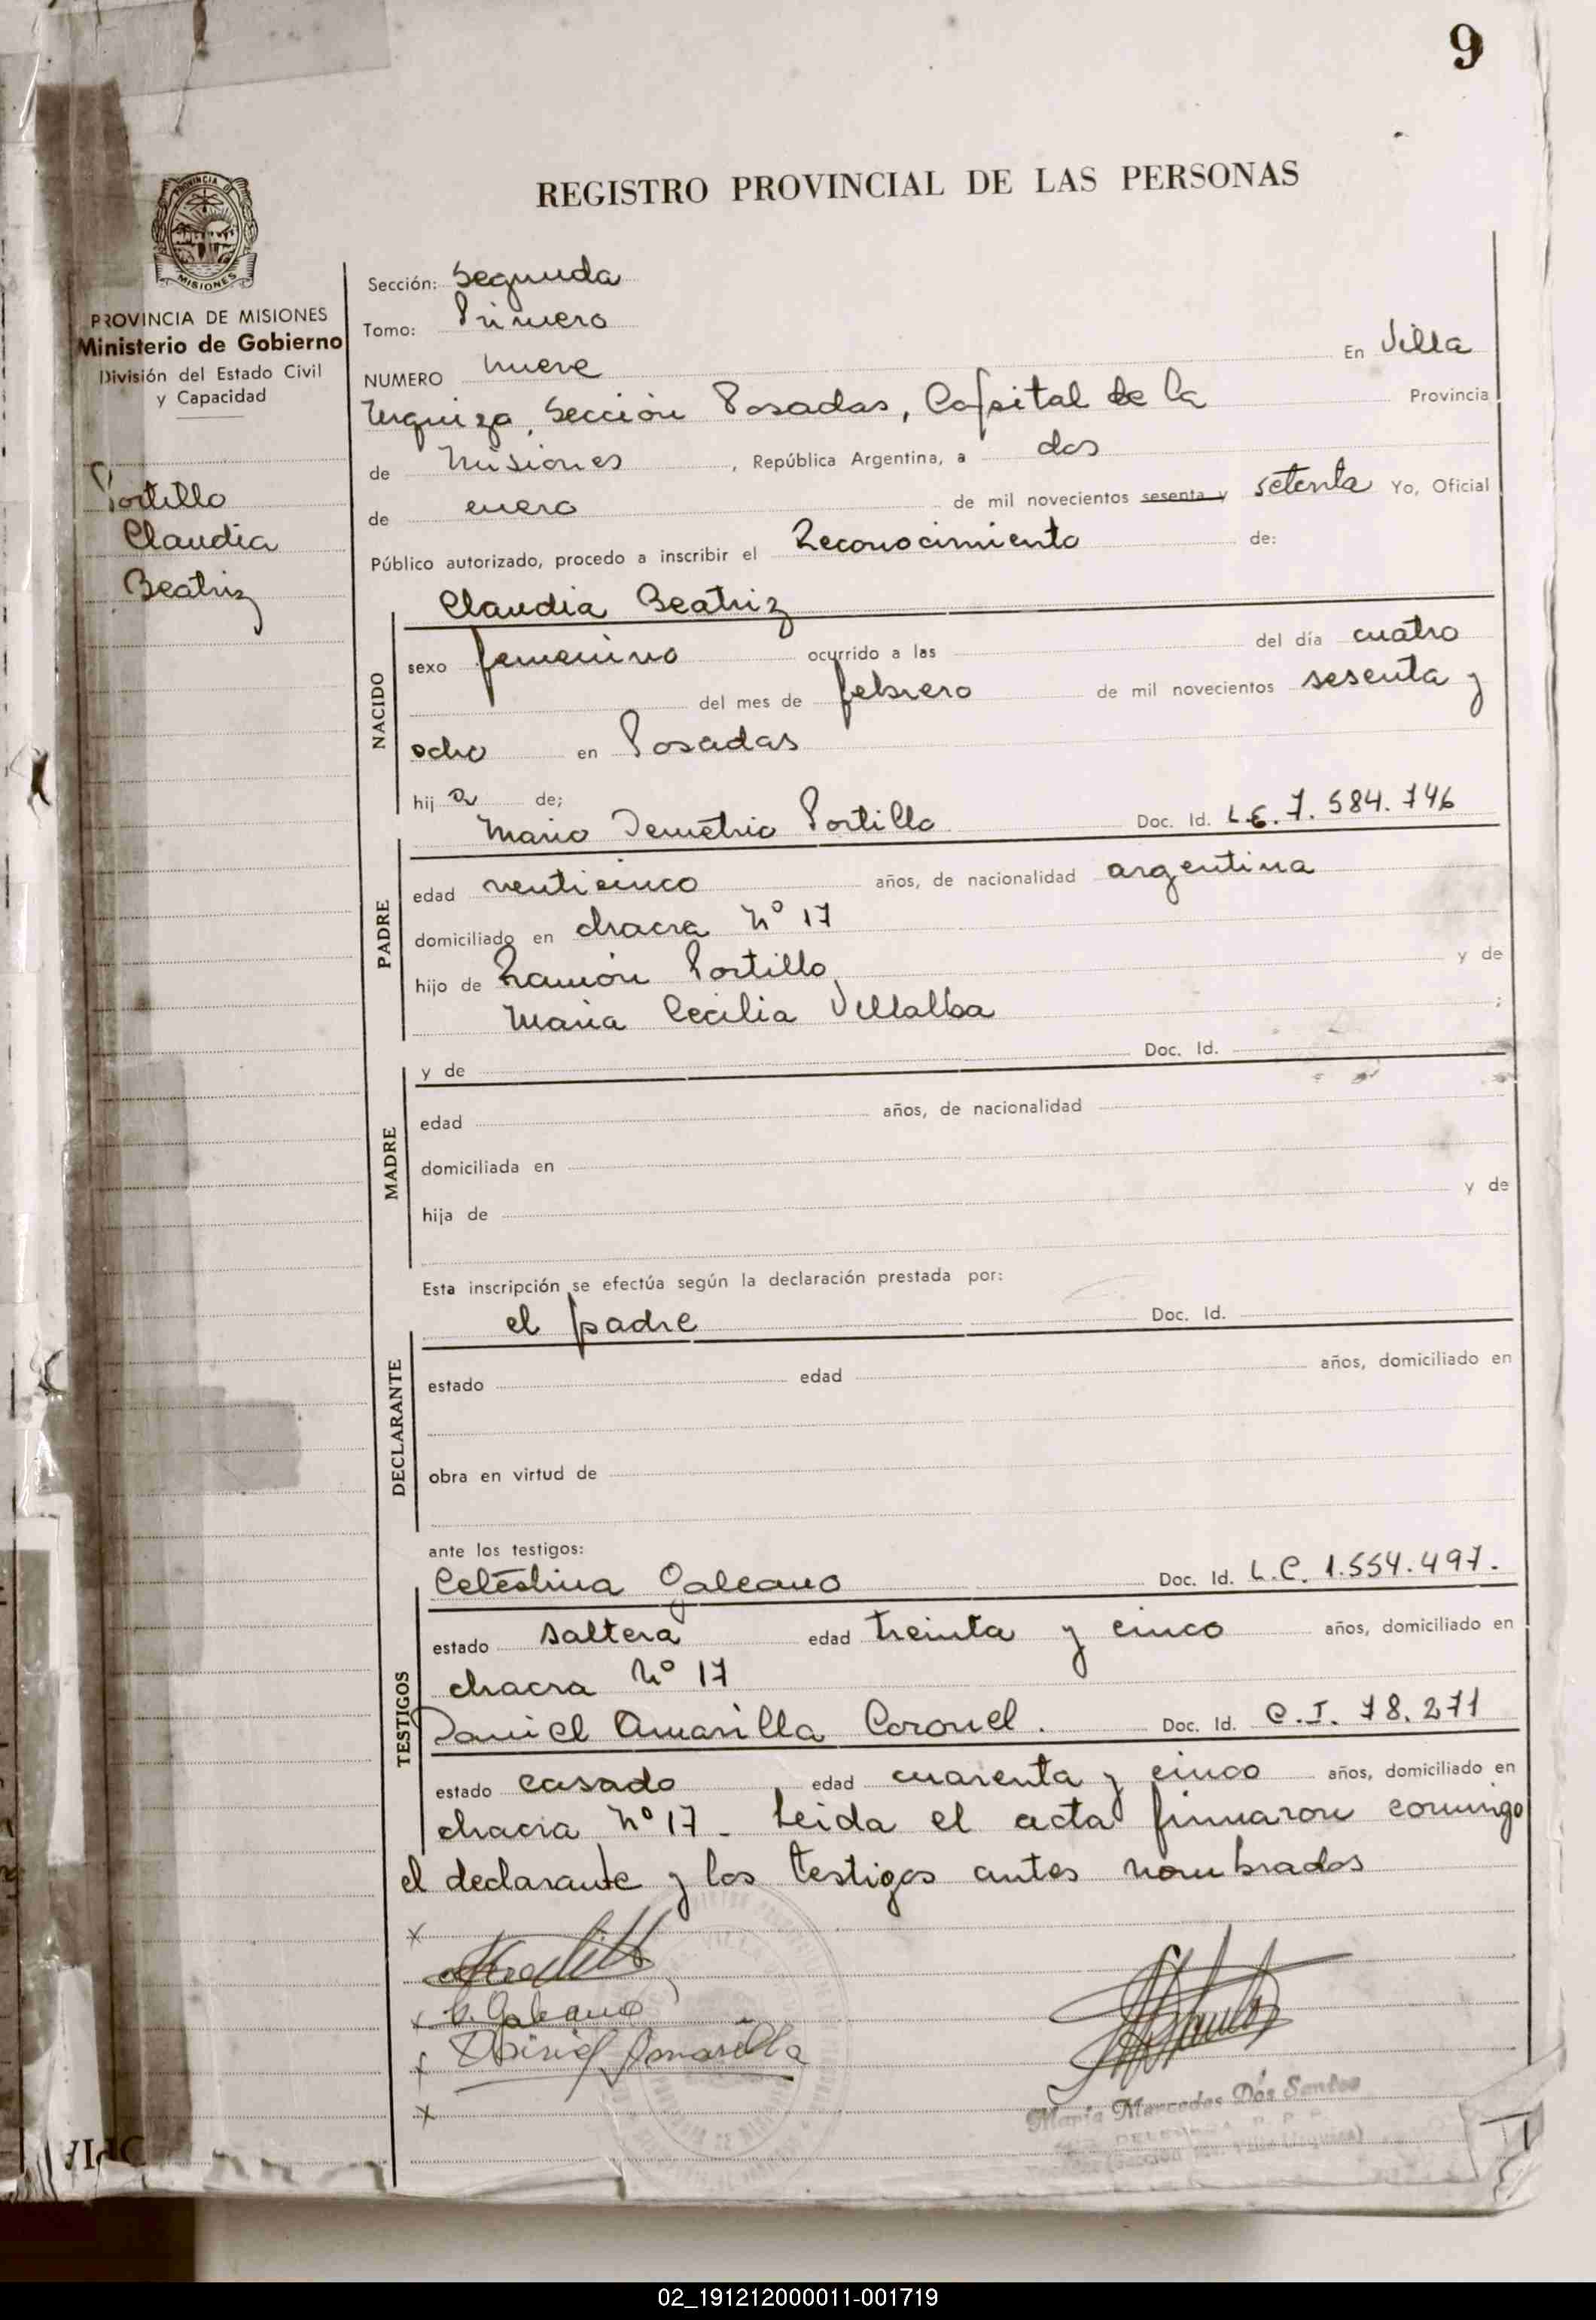 9
REGISTRO PROVINCIAL DE LAS PERSONAS
PROVINCIA DE MISIONES
PROVINCIA DE MISIONES
Ministerio de Gobierno
División del Estado Civil
y Capacidad
Portillo
Claudia
Beatriz
Sección: Segunda
Tomo: Primero
NUMERO nueve En Villa
Urquiza, Sección Posadas, Capital de la Provincia
de Misiones, República Argentina, a dos
de enero de mil novecientos sesenta y setenta Yo, Oficial
Público autorizado, procedo a inscribir el Reconocimiento de:
Claudia Beatriz
NACIDO
sexo femenino ocurrido a las del día cuatro
del mes de febrero de mil novecientos sesenta y
ocho en Posadas
hij a de;
Mario Demetrio Portillo Doc. Id. L.E. 7.584.746
PADRE
edad venticinco años, de nacionalidad argentina
domiciliado en chacra Nº 17
hijo de Ramón Portillo y de
Maria Cecilia Villalba ;
MADRE
y de Doc. Id.
edad años, de nacionalidad
domiciliada en
hija de y de
Esta inscripción se efectúa según la declaración prestada por:
el padre Doc. Id.
DECLARANTE
estado edad años, domiciliado en
obra en virtud de
ante los testigos:
Celestina Galeano Doc. Id. L.C. 1.554.497.
TESTIGOS
estado soltera edad treinta y cinco años, domiciliado en
chacra Nº 17
Daniel Amarilla Coronel. Doc. Id. C.I. 78.271
estado casado edad cuarenta y cinco años, domiciliado en
chacra Nº 17 - Leida el acta firmaron conmigo
el declarante y los testigos antes nombrados
C. Galeano
Daniel Amarilla
María Mercedes Dos Santos
02_191212000011-001719